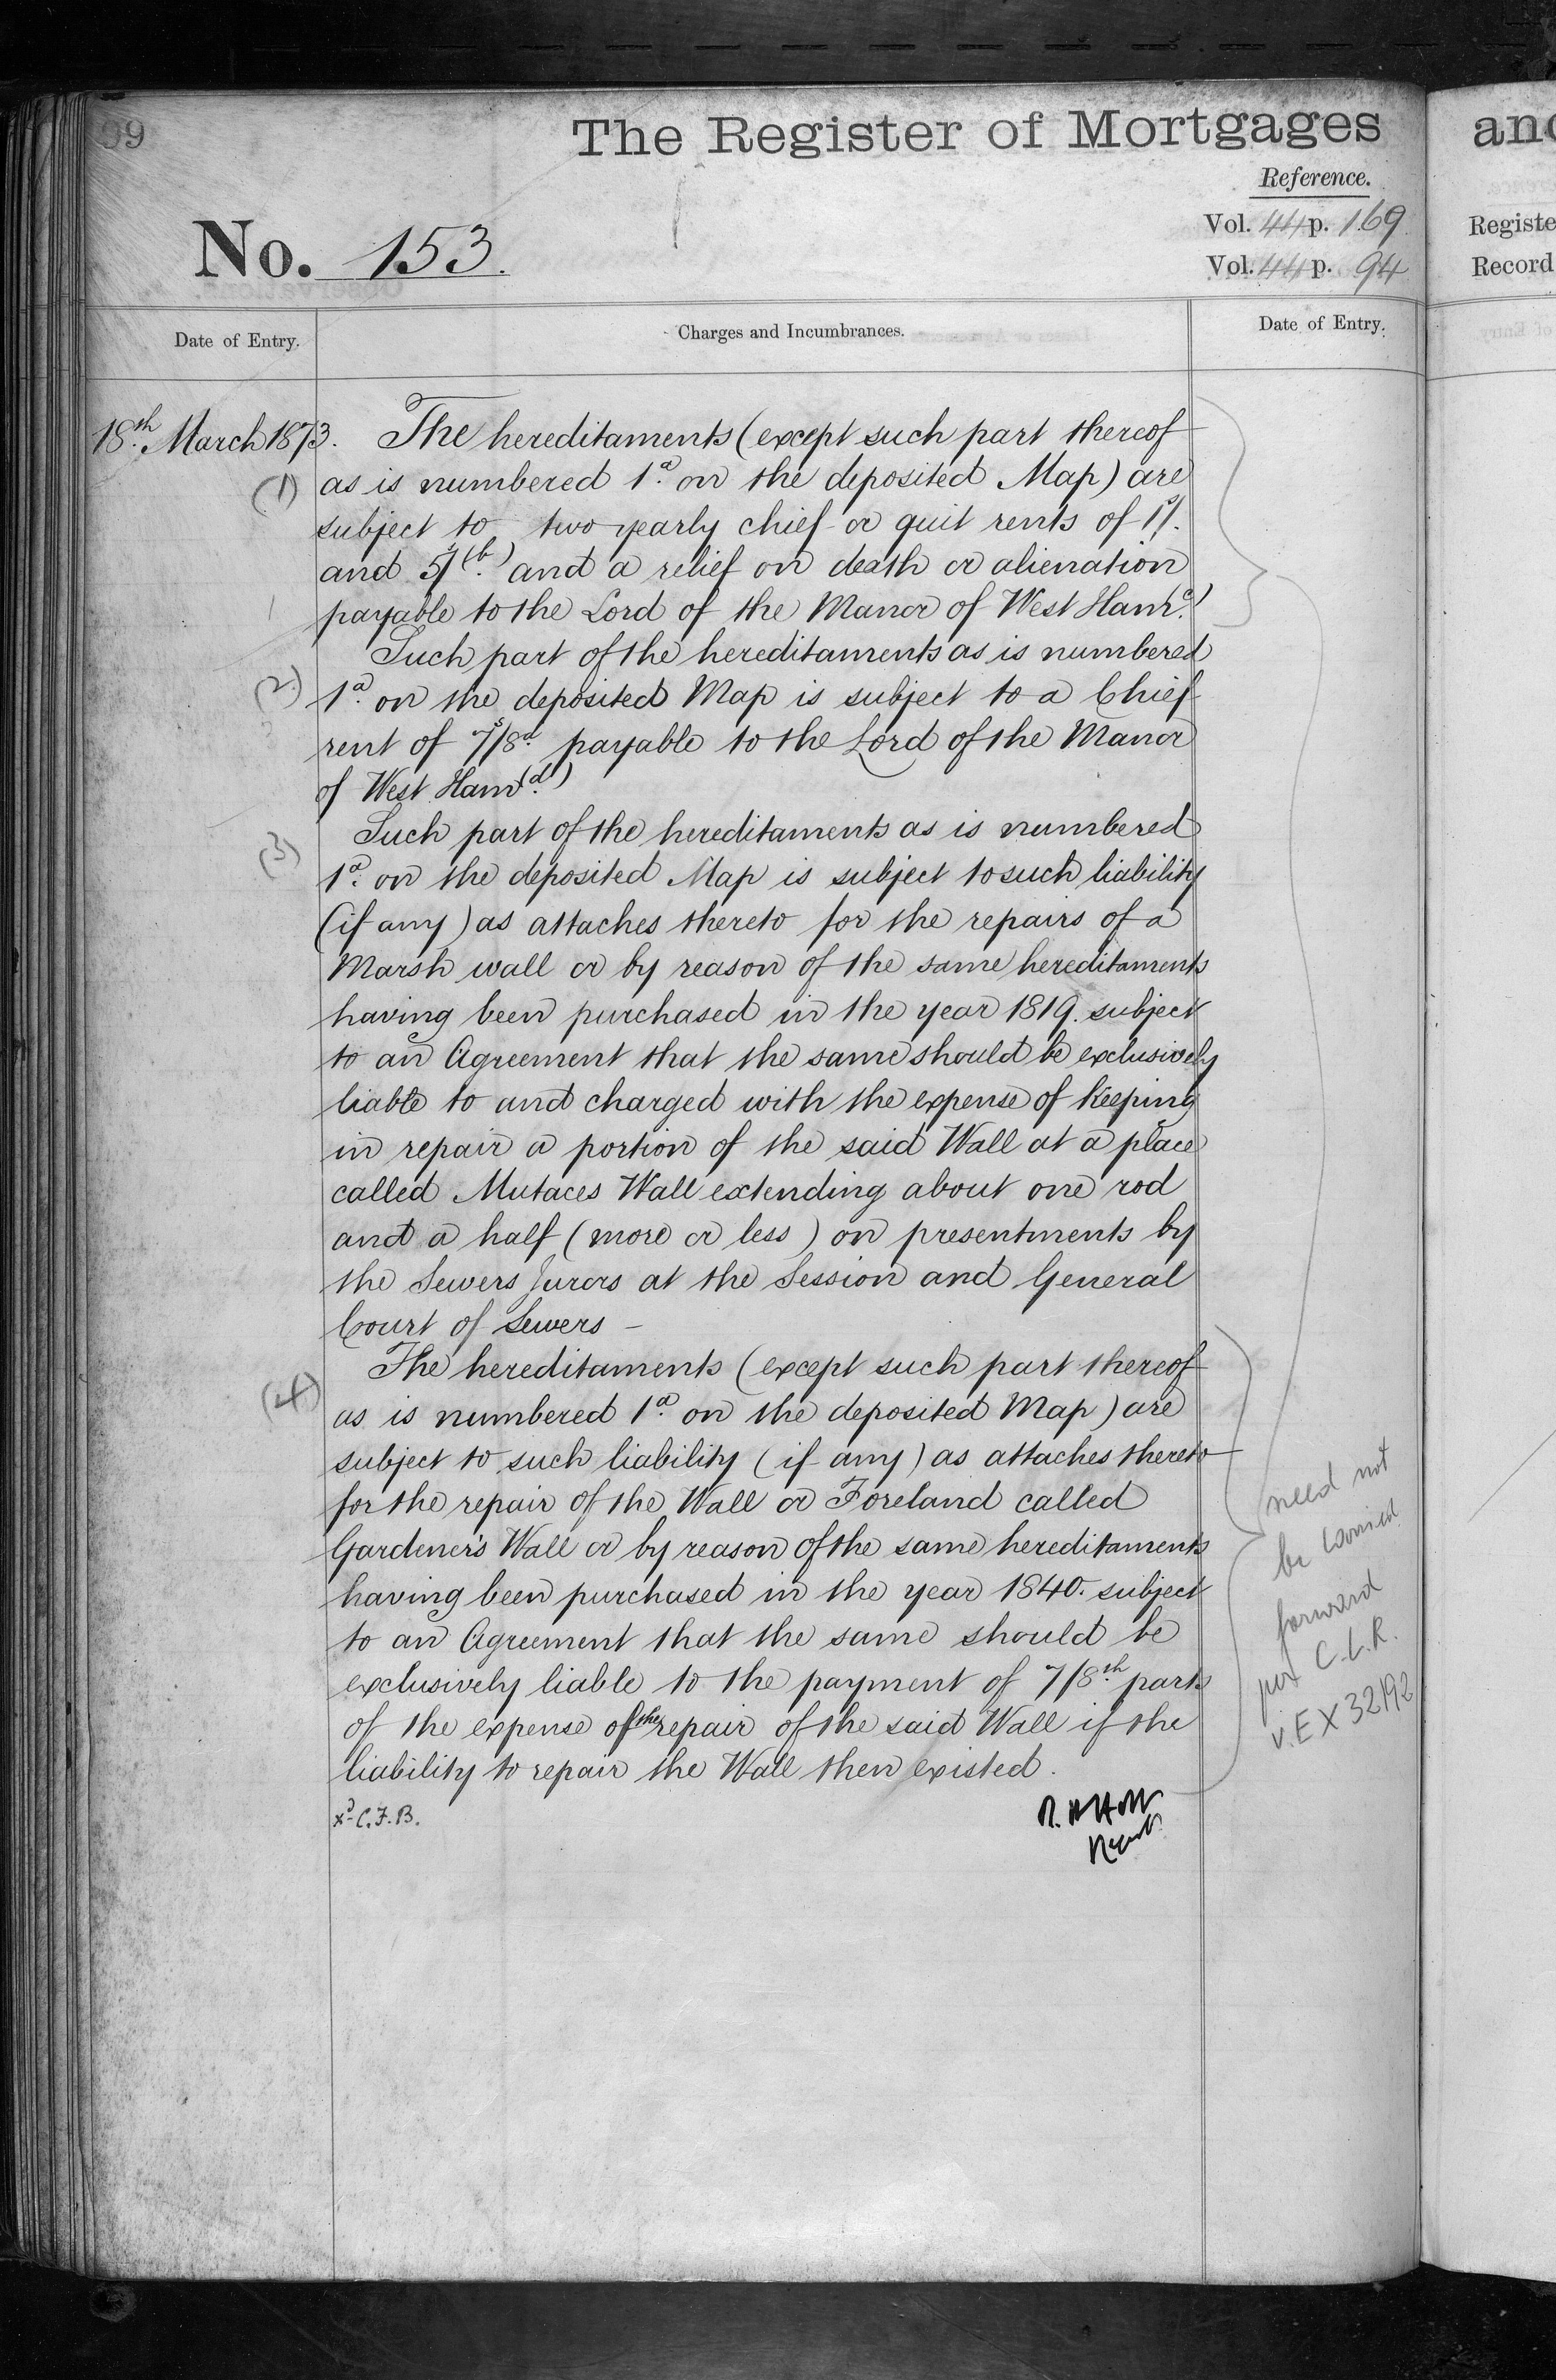 99
The Register of Mortgages
Reference.
Vol. 44 p. 169
Vol. 44 p. 94
No. 153.
Date of Entry.
Charges and Incumbrances.
Date of Entry.
18th. March 1873.
The hereditaments (except such part thereof
(1)
as is numbered 1a. on the deposited Map) are
subject to two yearly chief or quit rents of 1s/.
and 5s/(b.) and a relief on death or alienation
payable to the Lord of the Manor of West Ham(c.)
Such part of the hereditaments as is numbered
(2)
1a. on the deposited Map is subject to a Chief
rent of 7s/8d. payable to the Lord of the Manor
of West Ham(d.)
Such part of the hereditaments as is numbered
(3)
1a. on the deposited Map is subject to such liability
(if any) as attaches thereto for the repairs of a
Marsh wall or by reason of the same hereditaments
having been purchased in the year 1819. subject
to an Agreement that the same should be exclusively
liable to and charged with the expense of keeping
in repair a portion of the said Wall at a place
called Mutaces Wall extending about one rod
and a half (more or less) on presentments by
the Sewers Jurors at the Session and General
Court of Sewers –
The hereditaments (except such part thereof
(4)
as is numbered 1a. on the deposited Map) are
subject to such liability (if any) as attaches thereto
for the repair of the Wall or Foreland called
Gardener's Wall or by reason of the same hereditaments
having been purchased in the year 1840. subject
to an Agreement that the same should be
exclusively liable to the payment of 7/8th parts
of the expense of the repair of the said Wall if the
liability to repair the Wall then existed.
xd C.F.B.
need not
be carried
forward
per C.L.R.
v. EX 32192
and
Registe
Record